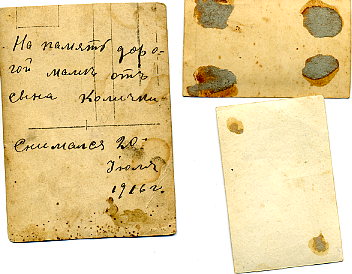 На память доро-
гой мамѣ отъ
сына Колички
Снимался 20
Iюля
1916 г.